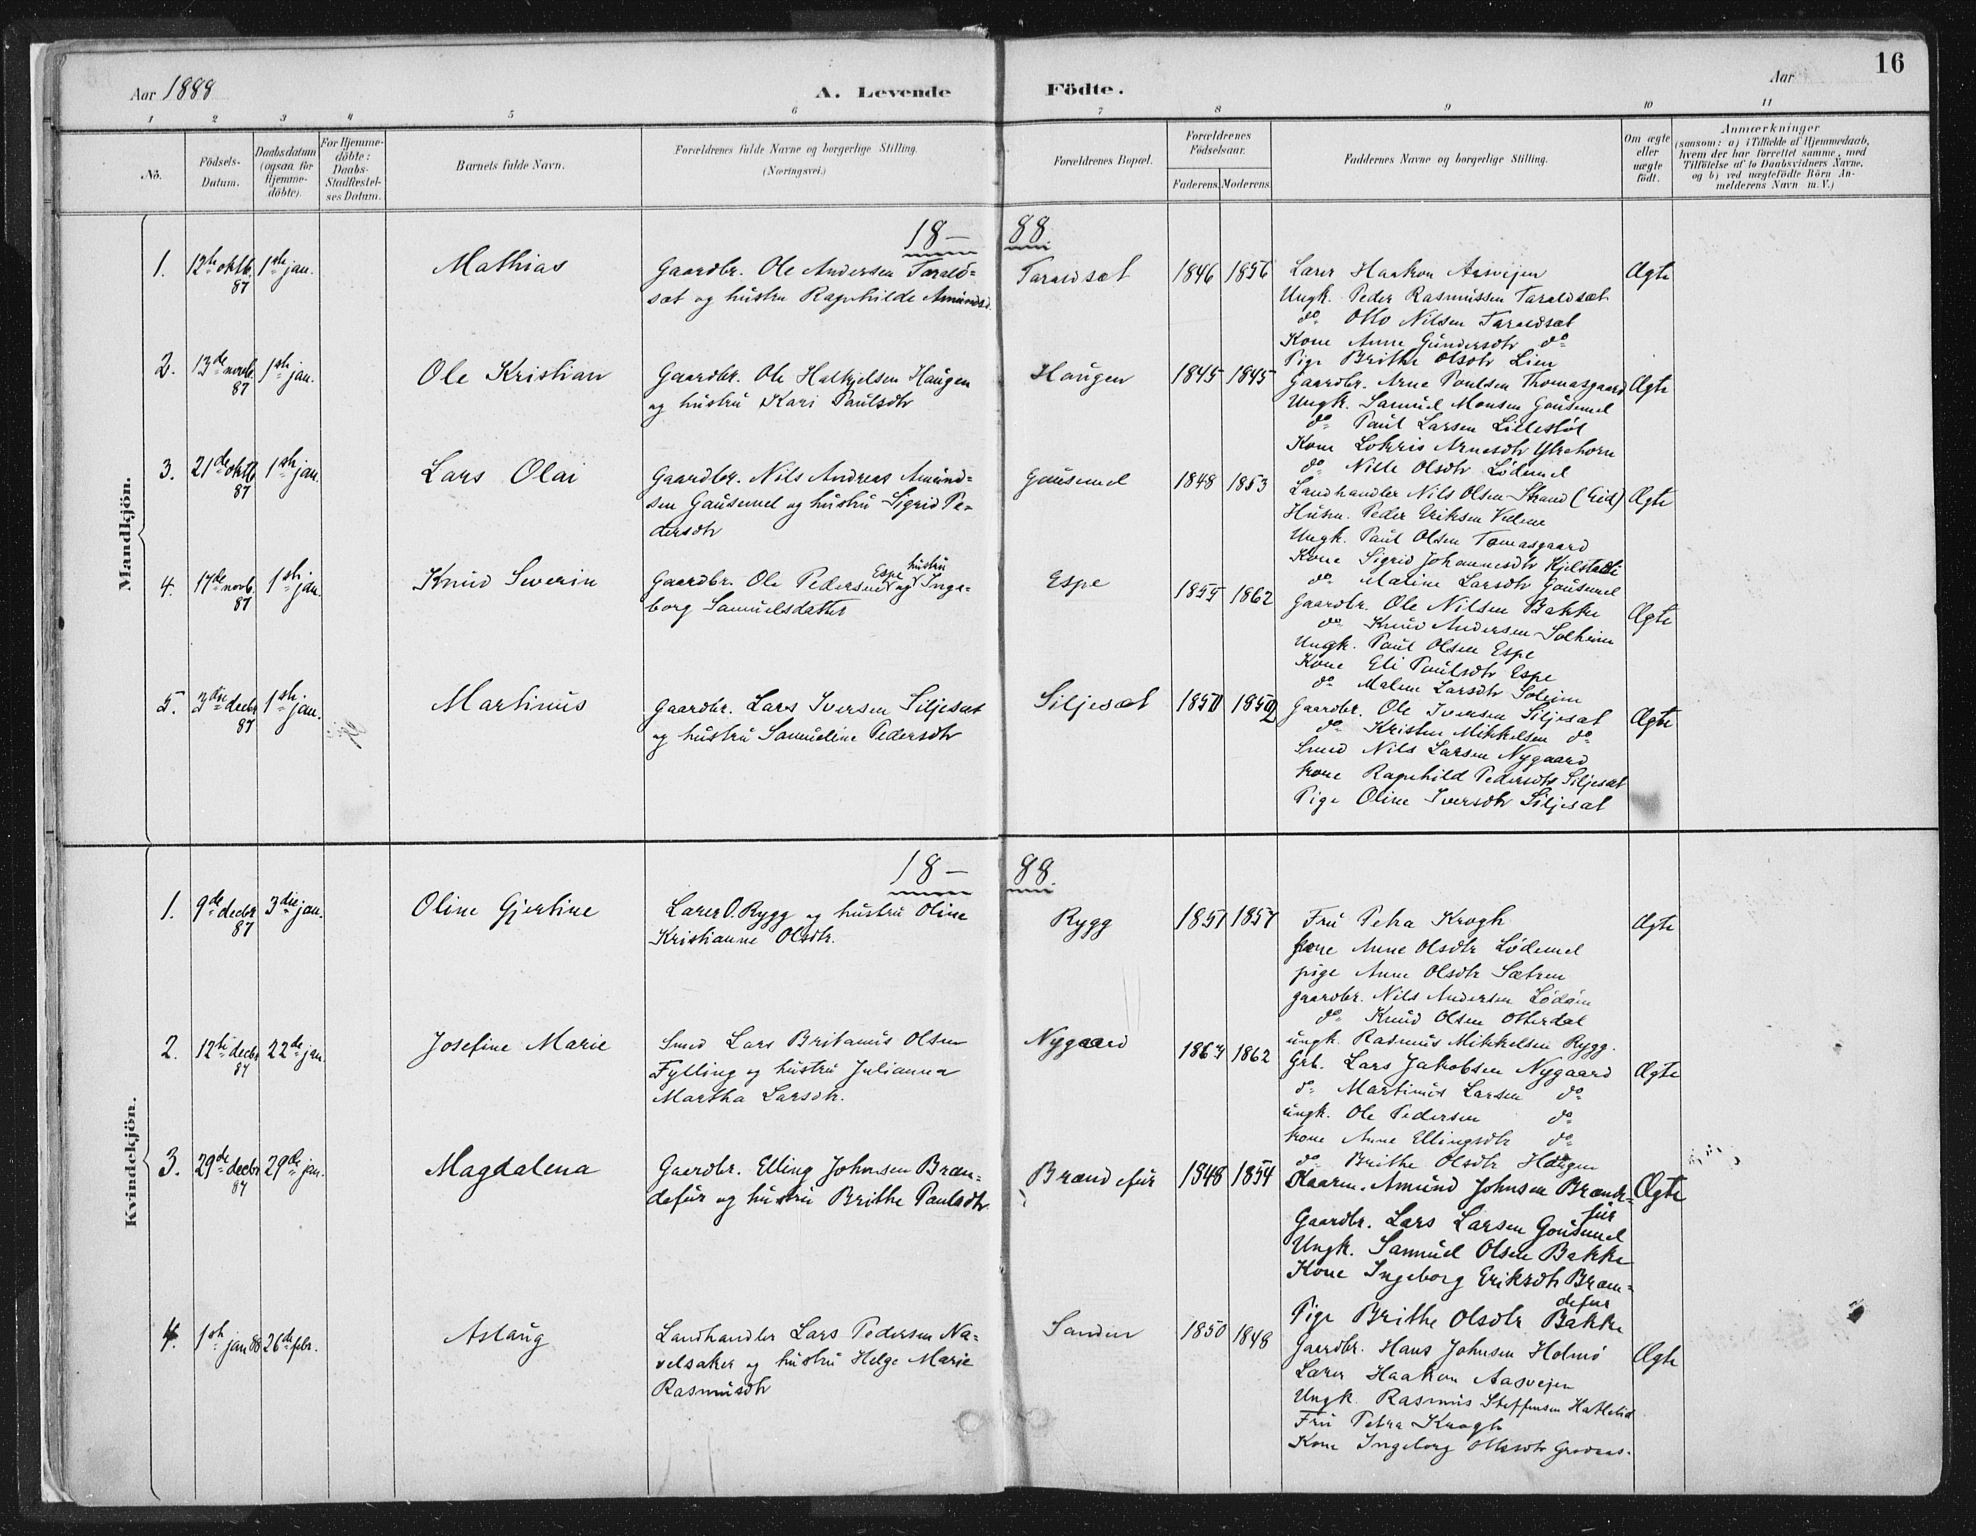 16
Aar 1888
A. Levende Födte.
Aar
1 2 3 4 5 6 7 8 9 10 11
No.
Födsels-
Datum.
Daabsdatum
(ogsaa for
Hjemme-
döbte).
For Hjemme-
döbte:
Daabs-
Stadfæstel-
ses Datum.
Barnets fulde Navn.
Forældrenes fulde Navne og borgerlige Stilling.
(Næringsvei.)
Forældrenes Bopæl.
Forældrenes
Födselsaar.
Faderens. Moderens.
Faddernes Navne og borgerlige Stilling.
Om ægte
eller
uægte
födt.
Anmærkninger
(saasom: a) i Tilfælde af Hjemmedaab,
hvem der har forrettet samme, med
Tilföielse af to Daabsvidners Navne,
og b) ved uægtefödte Börn An-
melderens Navn m. V.)
Mandkjön.
18— 88
1. 12te oktb. 87 1ste jan. Mathias
Gaardbr. Ole Andersen Tarald-
sæt og hustru Ragnhilde Amundsd.
Taraldsæt 1846 1856
Lærer Haakon Aasvejen
Ungk. Peder Rasmussen Taraldsæt
do Otto Nilsen Taraldsæt
Kone Anne Gundersdtr do
Pige Brithe Olsdtr Lien
Ægte
2. 13de novb. 87 1ste jan. Ole Kristian
Gaardbr. Ole Halkjelsen Haugen
og hustru Kari Paulsdtr
Haugen 1845 1845
Gaardbr. Arne Poulsen Thomasgaard
Ungk. Samuel Monsen Gausemel
do Paul Larsen Lillestøl
Kone Lokris Arnesdtr Ytrehorn
do Nille Olsdtr Lødemel
Ægte
3. 21de oktb. 87 1ste jan. Lars Olai
Gaardbr. Nils Andreas Amund-
sen Gausemel og hustru Sigrid Pe-
dersdtr
Gausemel 1848 1853
Landhandler Nils Olsen Strand (Eid)
Husm. Peder Eriksen
Ungk. Paul Olsen Tomasgaard
Kone Sigrid Johannesdtr Kjelstadli
do Maline Larsdtr Gausemel
Ægte
4. 17de novb. 87 1ste jan. Knud Severin
Gaardbr. Ole Pedersen Espe og hustru Inge-
borg Samuelsdatter
Espe 1855 1862
Gaardbr. Ole Nilsen Bakke
do Knud Andersen Solheim
Ungk. Paul Olsen Espe
Kone Eli Paulsdtr Espe
do Malene Larsdtr Solejm
Ægte
5. 3die decbr 87 1ste jan. Martinus
Gaardbr. Lars Iversen Siljesæt
og hustru Samueline Pedersdtr
Siljesæt 1850 1852
Gaardbr. Ole Iversen Siljesæt
do Kristen Mikkelsen do
Smed Nils Larsen Nygaard
Kone Ragnhild Pedersdtr Siljesæt
Pige Oline Iversdtr Siljesæt
Ægte
Kvindekjön.
18— 88
1. 9de decbr 87 3die jan. Oline Gjertine
Lærer O. Rygg og hustru Oline
Kristianne Olsdtr.
Rygg 1851 1857
Fru Petra Krogh
kone Anne Olsdtr Lødemel
pige Anne Olsdtr Sætren
gaardbr. Nils Andersen Lødøin
do Knud Olsen Otterdal
ungk. Rasmus Mikkelsen Rygg.
Ægte
2. 12te decbr 87 22de jan. Josefine Marie
Smed Lars Britanus Olsen
Fylling og hustru Julianna
Martha Larsdtr.
Nygaard 1863 1862
Grb. Lars Jakobsen Nygaard
do Martinus Larsen do
ungk. Ole Pedersen do
kone Anne Ellingsdtr do
do Brithe Olsdtr Haugen
Ægte
3. 29de decbr 87 29de jan. Magdalena
Gaardbr. Elling Johnsen Bræn-
defur og hustru Brithe Paulsdtr
Brændefur 1848 1854
Kaarm. Amund Johnsen Brænde-
fur
Gaardbr. Lars Larsen Gausemel
Ungk. Samuel Olsen Bakke
Kone Ingeborg Eriksdtr Bræn-
defur
Pige Brithe Olsdtr Bakke
Ægte
4. 1ste jan 88 26de febr. Aslaug
Landhandler Lars Pedersen Na-
velsaker og hustru Helge Marie
Rasmusdtr
Sanden 1850 1848
Gaardbr. Hans Johnsen Holmø
Lærer Haakon Aasvejen
Ungk. Rasmus Steffensen Hatlelid
Fru Petra Krogh
Kone Ingeborg Ottesdtr Grodaas.
Ægte